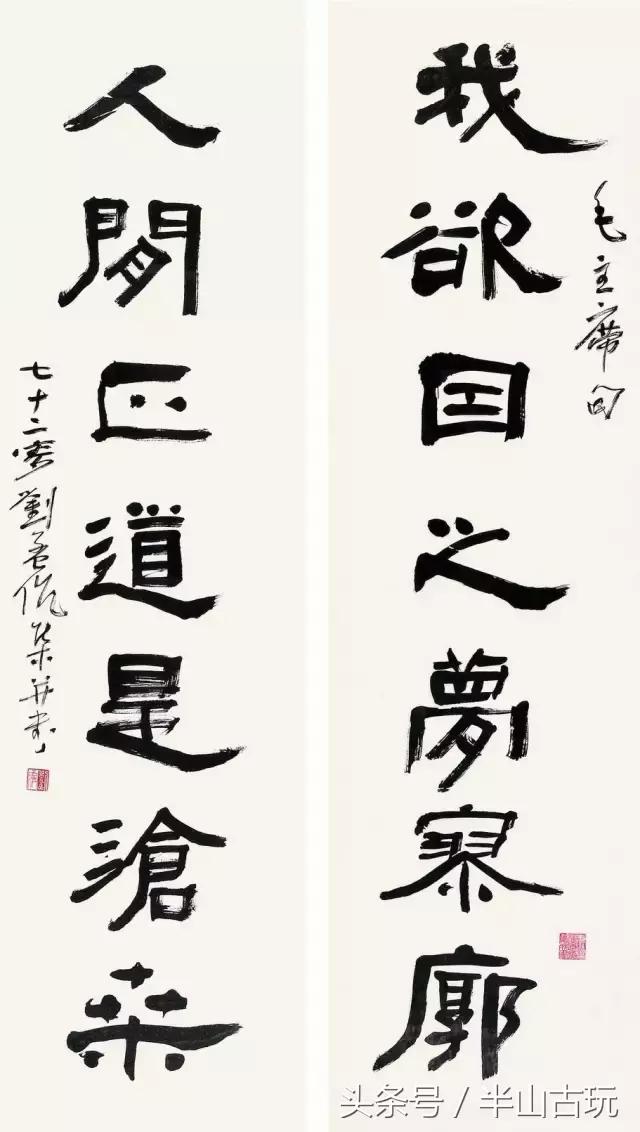 毛主席句
我欲因之夢寥廓
人閒正道是滄桑
七十二叟劉孟伉集并書
头条号 / 半山古玩